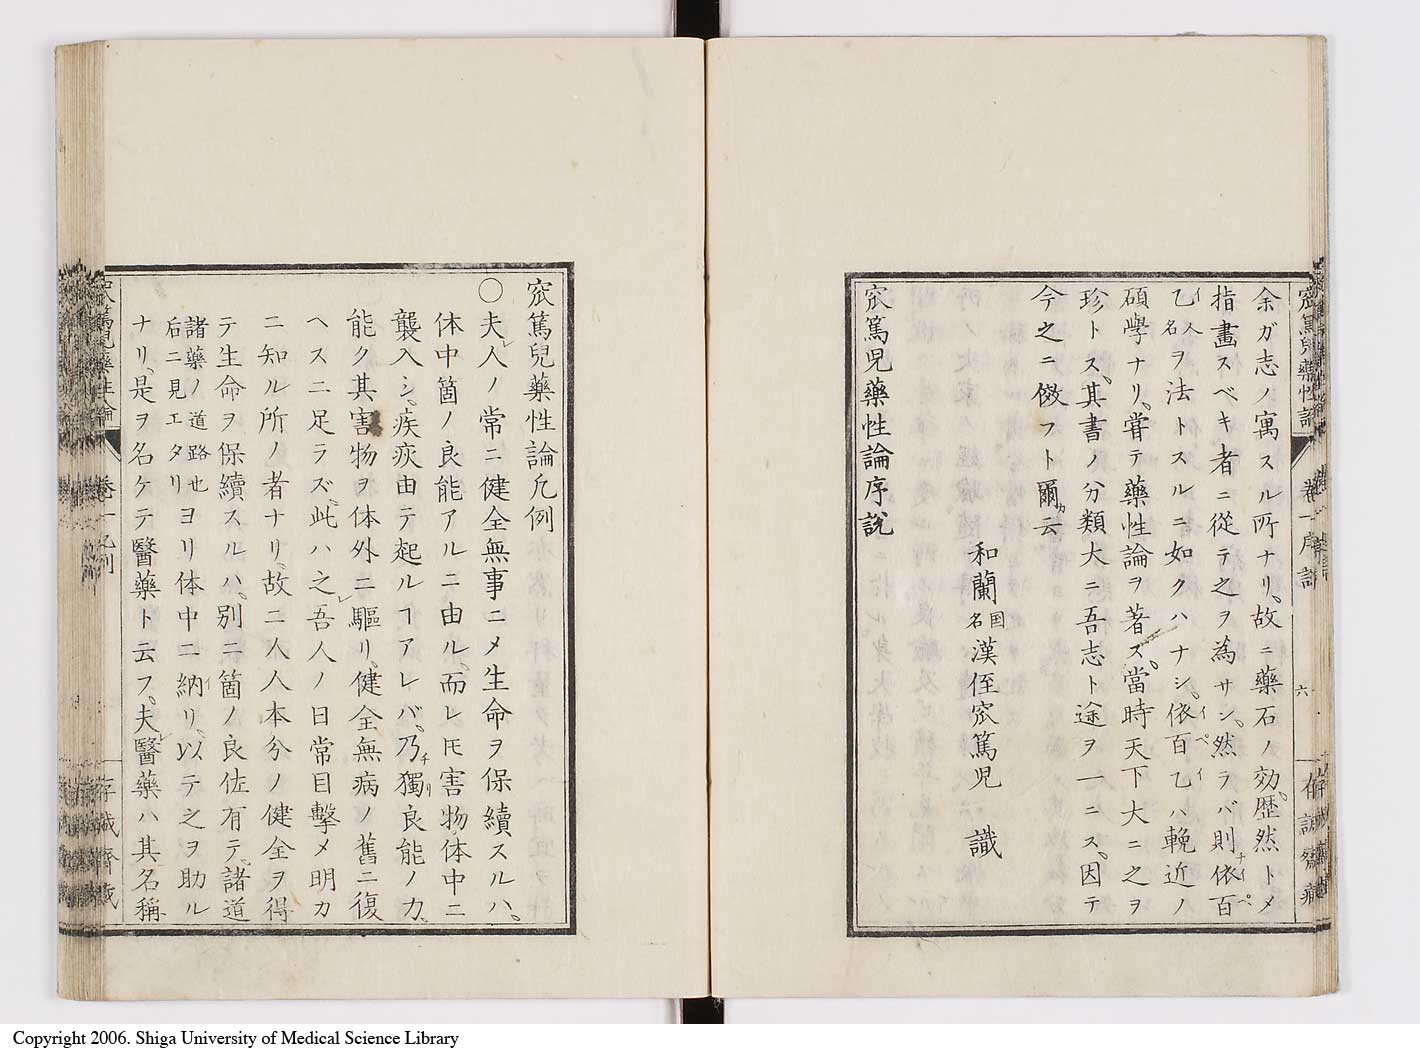 余ガ志ノ寓スル所ナリ。故ニ藥石ノ効。歴然トメ
指畫スベキ者ニ從テ之ヲ為サン。然ラバ則依百
乙人名ヲ法トスルニ如クハナシ。依百乙ハ輓近ノ
碩學ナリ。嘗テ藥性論ヲ著ス。當時天下大ニ之ヲ
珍トス。其書ノ分類大ニ吾志ト途ヲ一ニス。因テ
今之ニ傚フト爾云
和蘭国名漢侄窊篤児 識
窊篤児藥性論序説
窊篤兒藥性論凡例
○夫人ノ常ニ健全無事ニメ生命ヲ保續スルハ。
体中箇ノ良能アルニ由ル。而レ𪜈害物。体中ニ
襲入シ。疾疢由テ起ルヿアレバ。乃獨良能ノ力。
能ク其害物ヲ体外ニ驅リ。健全無病ノ舊ニ復
ヘスニ足ラズ。此ハ之吾人ノ日常目撃メ明カ
ニ知ル所ノ者ナリ。故ニ人人本分ノ健全ヲ得
テ生命ヲ保續スルハ。別ニ箇ノ良佐有テ。諸道
諸藥ノ道路也
后ニ見エタリ
ヨリ体中ニ納リ。以テ之ヲ助ル
ナリ。是ヲ名ケテ醫藥ト云フ。夫醫藥ハ其名稱
窊篤兒藥性論
卷一凡例
存誠齋藏
窊篤兒藥性論
卷一序説
六
存誠齋藏
Copyright 2006. Shiga University of Medical Science Library